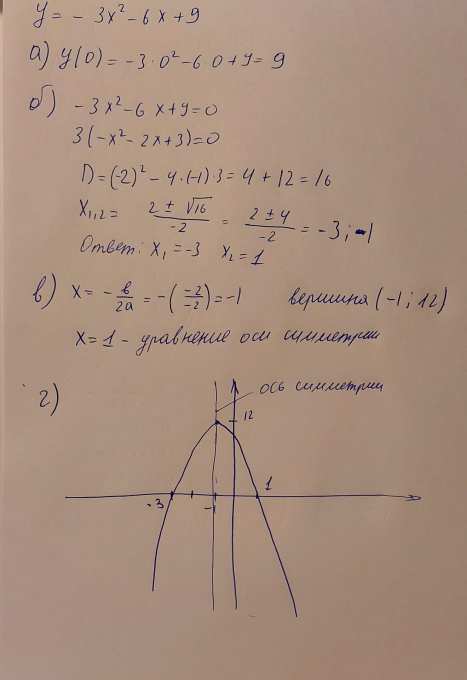 y = - 3x² - 6x + 9
а) y(0) = -3·0² - 6·0 + 9 = 9
б) -3x² - 6x + 9 = 0
3(-x² - 2x + 3) = 0
D = (-2)² - 4·(-1)·3 = 4 + 12 = 16
x₁,₂ = (2 ± √16)/-2 = (2 ± 4)/-2 = -3; 1
Ответ: x₁ = -3 x₂ = 1
в) x = - в/2a = -(-2/-2) = -1 вершина (-1; 12)
x = 1 - уравнение оси симметрии
г)
ось симметрии
12
-3 -1 1